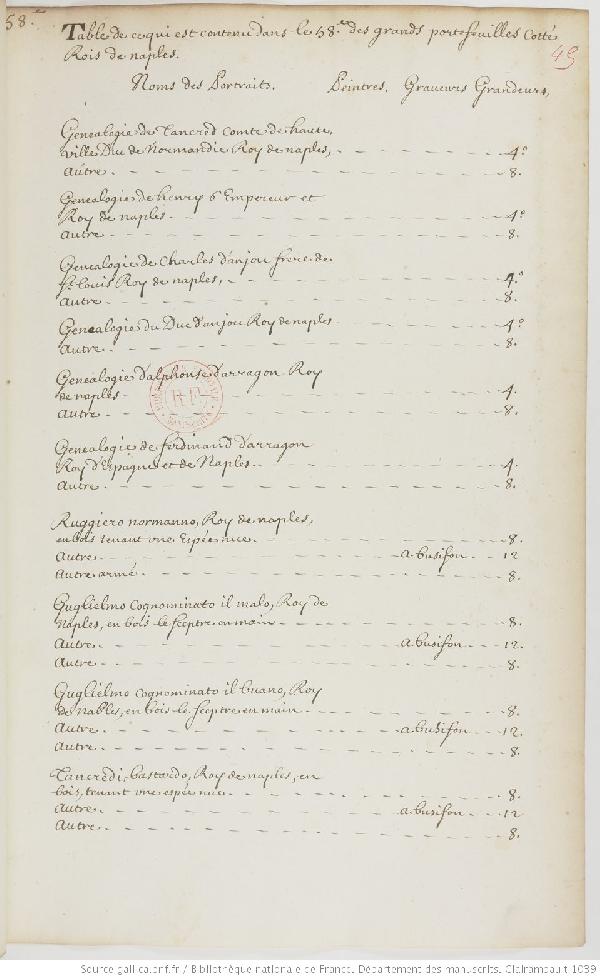 58.e
Table de ce qui est contenu dans le 58.e des grands portefeuilles Cotté
Rois de naples.
49
Noms des Portraits. Peintres. Graveurs Grandeurs,
Genealogie de Tancred Comte de haute,
ville Duc de Normandie Roy de naples, 4.o
Autre 8.
Genealogie de henry 6.e Empereur et
Roy de naples 4.o
Autre 8.
Genealogie de Charles d'anjou frere de
St. Louis Roy de naples, 4.o
Autre 8.
Genealogie du Duc d'anjou Roy de naples 4.o
Autre 8.
Genealogie d'alphonse d'arragon Roy
de naples 4.
Autre 8.
Genealogie de ferdinand d'arragon
Roy d'Espagne et de Naples 4.
Autre 8.
Ruggiero normanno, Roy de naples,
en bois tenant une Epée nue 8.
Autre a. busifon 12
Autre armé 8.
Guglielmo Cognominato il malo, Roy de
Naples, en bois le sceptre en main 8.
Autre a busifon 12.
Autre 8.
Guglielmo Cognominato il buano, Roy
de nables, en bois le sceptre en main 8.
Autre a. busifon 12.
Autre 8.
Tancredi, bastardo, Roy de naples, en
bois, tenant une espée nue 8.
Autre a busifon 12
Autre 8.
R F
Source gallica.bnf.fr / Bibliothèque nationale de France. Département des manuscrits. Clairambault 1039